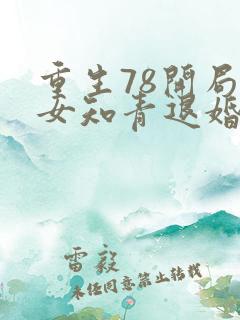 重生78开局
女知青退婚
雷毅
未经同意禁止转载